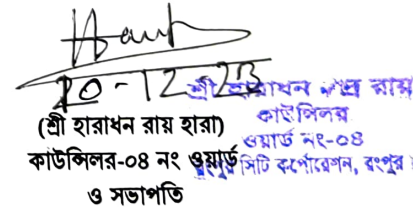 20-12-23
(শ্রী হারাধন রায় হারা)
কাউন্সিলর-০৪ নং ওয়ার্ড
ও সভাপতি
শ্রী হারাধন চন্দ্র রায়
কাউন্সিলর
ওয়ার্ড নং-০৪
রংপুর সিটি কর্পোরেশন, রংপুর